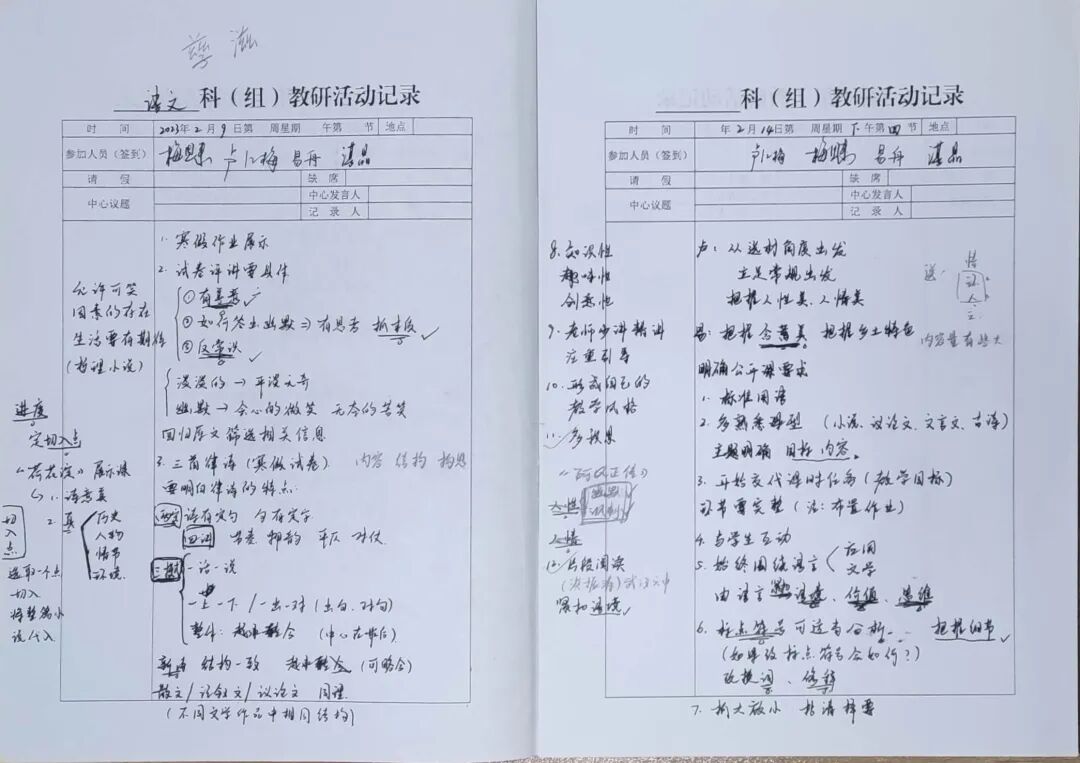 孳 滋
语文 科（组）教研活动记录
时 间 2023年2月9日第 周星期 午第 节 地点
参加人员（签到） 梅 卢江梅 易舟
请 假 缺 席
中心议题 中心发言人
记 录 人
1. 寒假作业展示
2. 试卷评讲要具体
① 有
② 如何答出幽默⇒有思考
③ 反常识
漫漫的→平淡
幽默→会心的微笑 无奈的苦笑
回归原文筛选相关信息
3. 三首律诗（寒假试卷） 内容 结构 构思
要明白律诗的特点
诗有定句 句有定字
四 韵 平仄 对仗
一话一说
一上一下/一出一对（出句、对句）
（中心在最后）
结构一致 （可略合）
散文/记叙文/议论文 同理
（不同文学作品中相同结构）
允许可笑
因素的存在
生活要有期待
（哲理小说）
进度
定切入点
《荷花淀》展示课
↳ 1. 诗意美
2. 真
历史
人物
情节
环境
切入点
选取一个点
切入
将整篇小
说代入
科（组）教研活动记录
时 间 年2月14日第 周星期 下午第四节 地点
参加人员（签到） 卢江梅 梅 易舟
请 假 缺 席
中心议题 中心发言人
记 录 人
卢：从选材角度出发
立足常规出发
把握人性美、人情美
易：把握含蓄美 把握乡土特色 内容量有些大
明确公开课要求
1. 标准用语
2. 多熟悉课型 （小说、议论文、文言文、古诗）
主题明确 目标 内容。
3. 开始交代课时任务（教学目标）
环节要完整（法：布置作业）
4. 与学生互动
5. 始终围绕语言 应用
文学
由语言 价值、思维
6. 标点符号可适当分析 把握细节
（如果改标点符号会如何？）
改换词、修辞
7. 抓大放小
8. 知识性
趣味性
创意性
9. 老师少讲精讲
注重引导
10. 形成自己的
教学风格
11. 多
《阿Q正传》
人性
人情
12. 阅读
紧扣语境